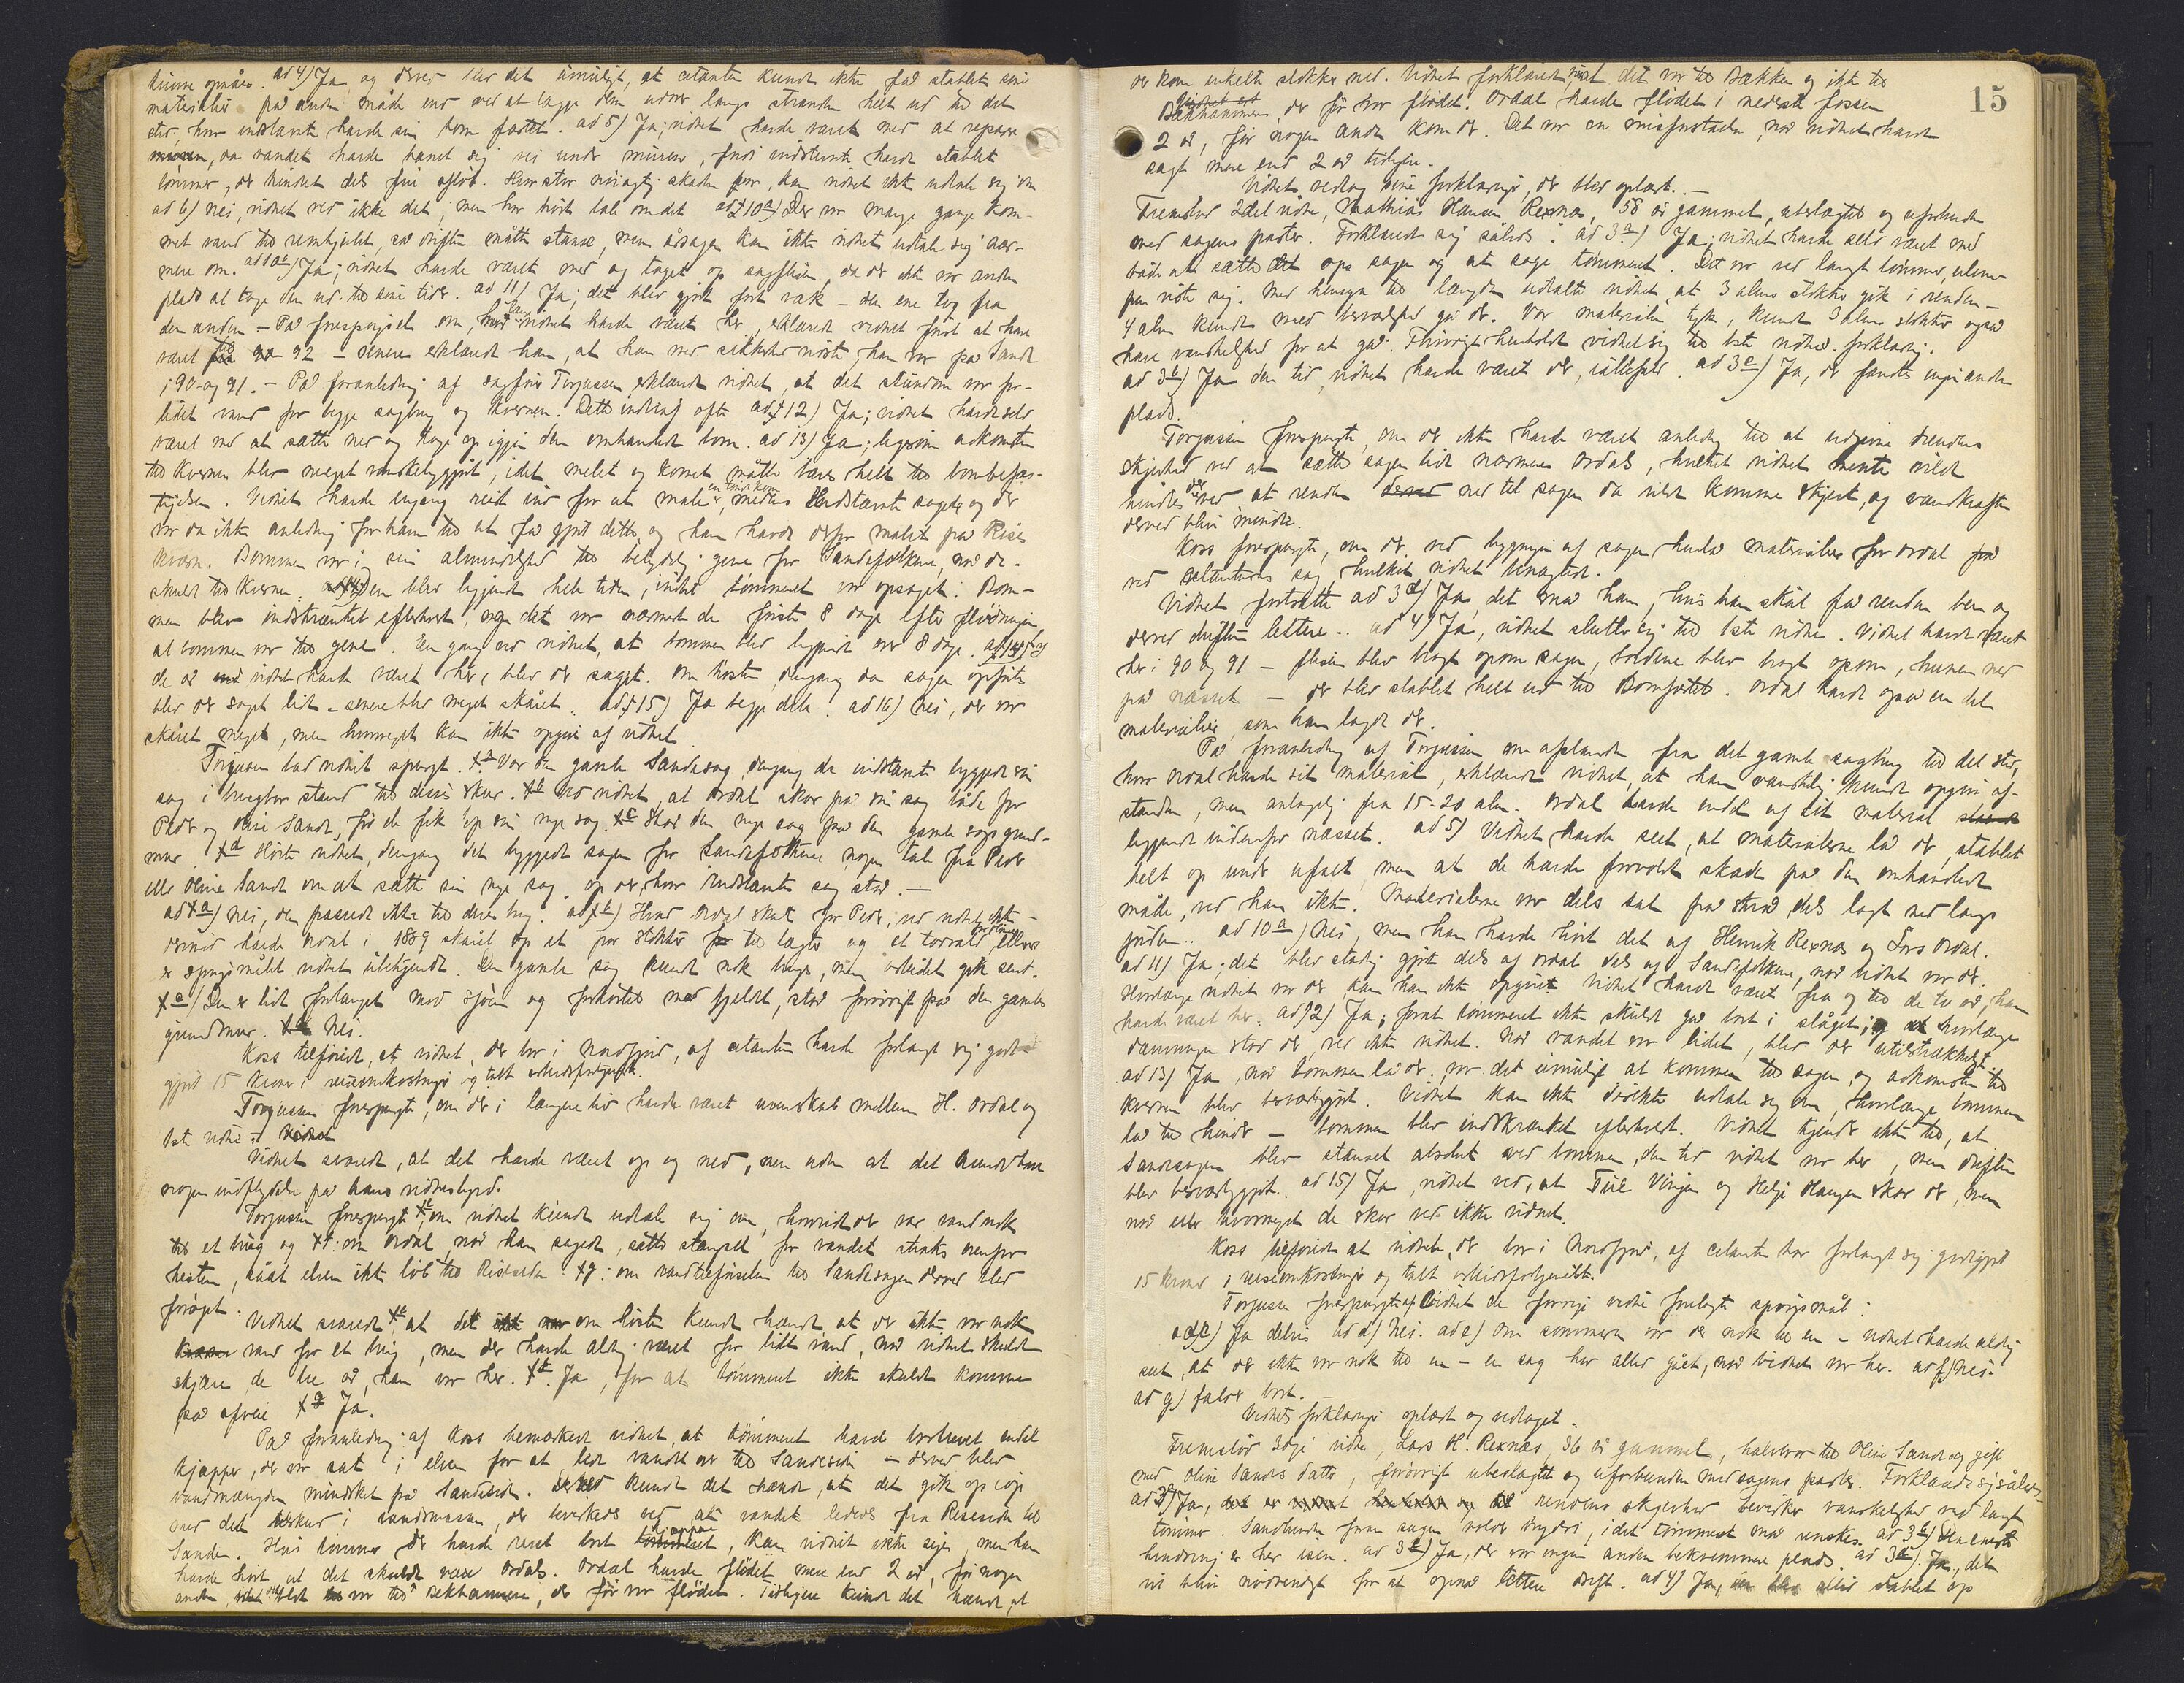 kunne opnåes. ad 4) Ja og derved blev det umuligt, at citanten kunde ikke få stablet sine
materialier på anden måde end ved at lægge dem udover langs stranden helt ud til det
sted, hvor indstævnte havde sin bom fæstet. ad 5) Ja; vidnet havde været med at reparere
muren, da vandet havde banet sig vei under muren, fordi indstevnte havde stablet
tømmer, der hindret dets frie afløb. Hvor stor nøiagtig skaden var, kan vidnet ikke udtale sig om
ad 6) Nei, vidnet ved ikke det; men har hørt tale om det ad 10a) Der var mange gange kom-
met vand til vandhjulet, så driften måtte stanse, men årsagen kan ikke vidnet udtale sig nær-
mere om. ad 10a) Ja; vidnet havde været med og taget op sagflisen, da der ikke var anden
plads at tage den ud til sine tider. ad 11) Ja; det blev gjort fort væk – den ene tog fra
den anden – På forespørgsel om, hvor længe vidnet havde været her, erklærede vidnet først at have
været til 92 – senere erklæred han, at han med sikkerhed vidste, han var på Sande
i 90 og 91. – På foranledning af sagfører Torjussen erklæred vidnet, at det stundom var for-
lidet vand for begge sagbrug og kvernen. Dette indtraf ofte ad 12) Ja; vidnet havde selv
været med at sætte ned og tage op igjen den omhandlede bom. ad 13) Ja; ligesom adkomsten
til kvernen blev meget vanskeliggjort, idet melet og kornet måtte bæres helt til bombefæs-
tigelsen. Vidnet havde engang reist ind for at male en tønde korn, medens Indstævnte sagede og der
var da ikke anledning for ham til at få gjort dette, og han havde derfor malet på Rises
kvern. Bommen var i sin almindelighed til betydelig gene for Sandefolkene, når de
skulde til kvernen. Den blev liggende hele tiden, indtil tømmeret var opsaget. Bom-
men blev indskrænket efterhvert, men det var nærmest de første 8 dage efter flødningen,
at bommen var til gene. En gang ved vidnet, at bommen blev liggende over 8 dage. ad 14) Ja
de år vidnet havde været her, blev der saget. Om høsten, dengang da sagen opførtes
blev der saget lidt – senere blev meget skåret. ad 15) Ja begge dele. ad 16) Nei, der var
skåret meget, men hvormeget kan ikke opgives af vidnet
Torjusen lod vidnet spørge. xa Var den gamle Sandesag, dengang da indstævnte byggede sin
sag i brugbar stand til dennes skur. xb Ved vidnet, at Ordal skar på sin sag både for
Peder og Oline Sande, før de fik op sin nye sag. xc Står den nye sag på den gamle sags grund-
mur. xd Hørte vidnet, dengang det byggede sagen for Sandefolkene nogen tale fra Peder
eller Oline Sande om at sætte sin nye sag op der, hvor Indstævntes sag stod. –
ad xa) Nei, den passede ikke til deres brug. ad xb) Hvad Ordal skar for Peder, ved vidnet ikke –
derimod havde Ordal i 1889 skåret op et par stokker til lægter og et torvald ellers
er spørgsmålet vidnet ubekjendt. Den gamle sag kunde nok bruges, men arbeidet gik sent.
xc) Den er lidt forlænget mod sjøen og forkortet mod fjeldet, står forøvrigt på den gamle
grundmur. xd Nei.
Koss tilføiede, at vidnet, der bor i Nordfjord, af citanten havde forlangt sig godt-
gjort 15 kroner i reiseomkostninger og tabt arbeidsfortjeneste.
Torjussen forespurgte, om der i længere tid havde været uvenskab mellem H. Ordal og
1ste vidne
Vidnet svarede, at det havde været op og ned, men uden at det kunde have
nogen indflydelse på hans vidnesbyrd.
Torjussen forespurgte xe om vidnet kunde udtale sig om, hvorvidt der var vand nok
til et brug og xf: om Ordal, når han sagede, satte stængsel for vandet straks ovenfor
hesten, såat elven ikke løb til Risesiden. xg: om vandtilførselen til Sandesagen derved blev
forøget.
Vidnet svarede xe, at det om høsten kunde hændt at der ikke var nok
vand for et brug, men der havde aldrig været for lidt vand, når vidnet skulde
skjære de tre år, han var her. xf Ja, for at tømmeret ikke skulde komme
på afveie xg Ja.
På foranledning af Koss bemærkede vidnet, at tømmeret havde bortrevet endel
kjæpper, der var sat i elven for at lede vandet over til Sandesiden – derved blev
vandmængden mindsket på Sandesiden. Derved kunde det hænde, at det gik op i op
med det tilskud i vandmassen, der bevirkedes ved, at vandet ledes fra Risesiden til
Sanden. Hvis tømmer der havde revet bort kjæppene, kan vidnet ikke sige, men han
havde hørt, at det skulde være Ordals. Ordal havde flødet mere end 2 år, før nogen
anden, det var til Bekkhammeren, der før var flødet. Tidligere kunde det hænde, at
15
der kom enkelte stokke ned. Vidnet forklarede, at det var til Bækken og ikke til
Bækhammeren, der før var flødet. Ordal havde flødet i nederste fossen
2 år, før nogen anden kom der. Det var en misforståelse, når vidnet havde
sagt mere end 2 år tidligere.
Vidnet vedtog sine forklaringer, der blev oplæst. –
Fremstod 2det vidne, Mathias Hansen Rexnæs, 58 år gammel, ubeslægtet og uforbunden
med sagens parter. Forklarede sig således: ad 3a) Ja; vidnet havde selv været med
både at sætte op sagen og at sage tømmeret. Det var ved langt tømmer, ulem-
pen viste sig. Med hensyn til længden udtalte vidnet, at 3 alens stokke gik i renden –
4 alen kunde med besværlighed gå der. Var materialen tyk, kunde 3 alens stokker også
have vanskelighed for at gå. Forøvrigt henholdt vidnet sig til 1ste vidnes forklaring.
ad 3b) Ja den tid, vidnet havde været der, ialtefald. ad 3c) Ja, der fandtes ingen anden
plads.
Torjussen forespurgte, om der ikke havde været anledning til at udjevne rendens
skjevhed ved at sætte sagen lidt nærmere Ordals, hvilket vidnet mente vilde
hindres derved at renden ned til sagen da vilde komme skjevt, og vandkraften
derved blive mindre.
Koss forespurgte, om der ved bygningen af sagen hadde materialier for Ordal
ved citantens sag, hvilket vidnet benægtede.
Vidnet fortsatte ad 3d) Ja det må han, hvis han skal få renden bein og
derved driften lettere.. ad 4) Ja, vidnet slutter sig til 1ste vidne. Vidnet havde været
her i 90 og 91 – flisen blev bragt op om sagen, bordene blev bragt op om, hunen ned
på næsset – der blev stablet helt ud til Bomfæstet. Ordal havde også en del
materialier, som han lagde der.
På foranledning af Torjussen om afstanden fra det gamle sagbrug til det sted,
hvor Ordal havde sit materiale, erklærede vidnet, at han vanskelig kunde opgive af-
standen, men antagelig fra 15-20 alen. Ordal havde endel af sit material
liggende indenfor næsset. ad 5) Vidnet havde seet, at materialerne lå der, stablet
helt op under ufset, men at de havde forvoldt skade på den omhandlede
måde, ved han ikke. Materialerne var dels sat på strå, dels lagt ned langs
jorden.. ad 10a) Nei, men han havde hørt det af Henrik Rexnæs og Lars Ordal.
ad 11) Ja; det blev stadig gjort dels af Ordal dels af Sandefolkene, når vidnet var der.
Hvorlænge vidnet var der, kan han ikke opgive. Vidnet havde været fra og til de to år, han
havde været her. ad 12) Ja; forat tømmeret ikke skulde gå bort i slåget; hvorlænge
dæmningen stod der, ved ikke vidnet. Når vandet var lidet, blev der utilstrækkeligt
ad 13) Ja, når bommen lå der, var det umuligt at komme til sagen, og adkomsten til
kvernen blev besværliggjort. Vidnet kan ikke direkte udtale sig om, hvorlænge bommen
lå til hinder – bommen blev indskrænket efterhvert. Vidnet kjender ikke til, at
Sandesagen blev stanset absolut ved bommen, den tid vidnet var her, men driften
blev besværliggjort. ad 15) Ja, vidnet ved, at Tue Vingen og Helje Haugen skar der, men
når eller hvormeget de skar ved ikke vidnet.
Koss tilføiede at vidnet, der bor i Nordfjord, af citanten har forlangt sig godtgjort
15 kroner i reiseomkostninger og tabt arbeidsfortjeneste.
Torjussen forespurgte af vidnet de forrige vidne forelagte spørgsmål:
ad c) Ja delvis ad d) Nei. ad e) Om sommeren var der nok til en – vidnet havde aldrig
seet, at der ikke var nok til en – en sag har altid gået, når vidnet var her. ad f) Nei.
ad g) falder bort.
Vidnets forklaringer oplæst og vedtaget.
Fremstod 3dje vidne, Lars H. Rexnæs, 36 år gammel, halvbror til Oline Sande og gift
med Oline Sandes datter, forøvrigt ubeslægtet og uforbunden med sagens parter. Forklarede sig således:
ad 3a) Ja, rendens skjevhed bevirker vanskelighed ved langt
tømmer. Sandbunden foran sagen volder bryderi, idet tømmeret må renskes. ad 3b) Den eneste
hindring er her isen. ad 3c) Ja, der var ingen anden bekvemmere plads. ad 3d) Ja, det
vil blive nødvendigt for at opnå lettere drift. ad 4) Ja, blev altid stablet op